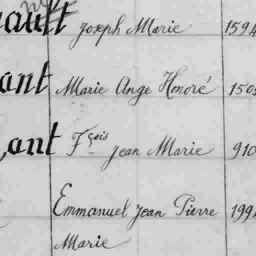 ault Joseph Marie 1594
ant Marie Ange Honoré 150
ant Fçois Jean Marie 910
Emmanuel Jean Pierre 199
Marie